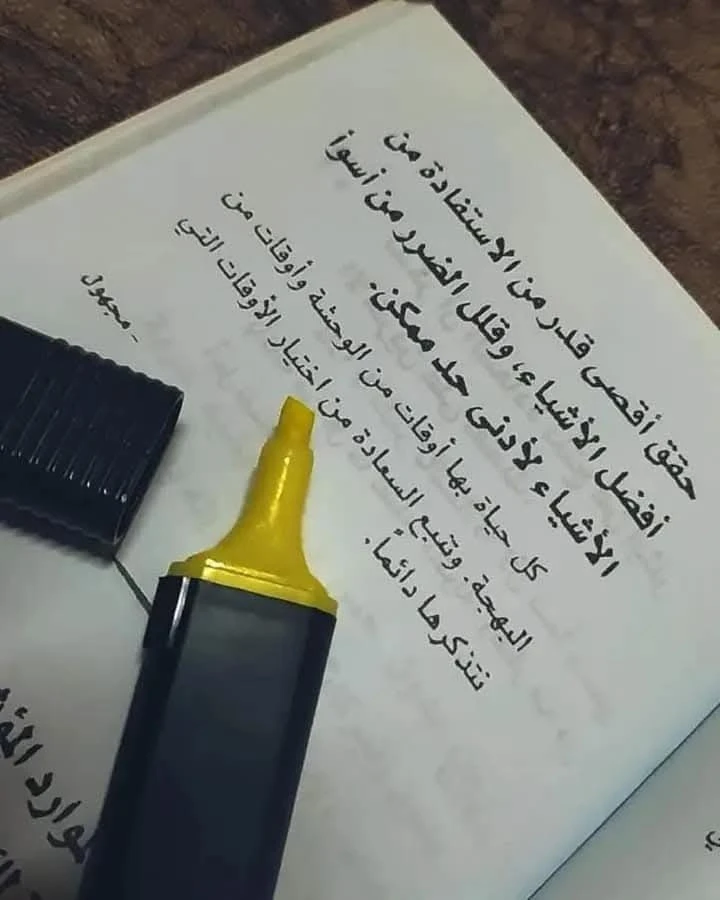 حقق أقصى قدر من الاستفادة من
أفضل الأشياء، وقلل الضرر من أسوأ
الأشياء لأدنى حد ممكن.
كل حياة بها أوقات من الوحشة وأوقات من
البهجة. وتنبع السعادة من اختيار الأوقات التي
نتذكرها دائماً.
- مجهول